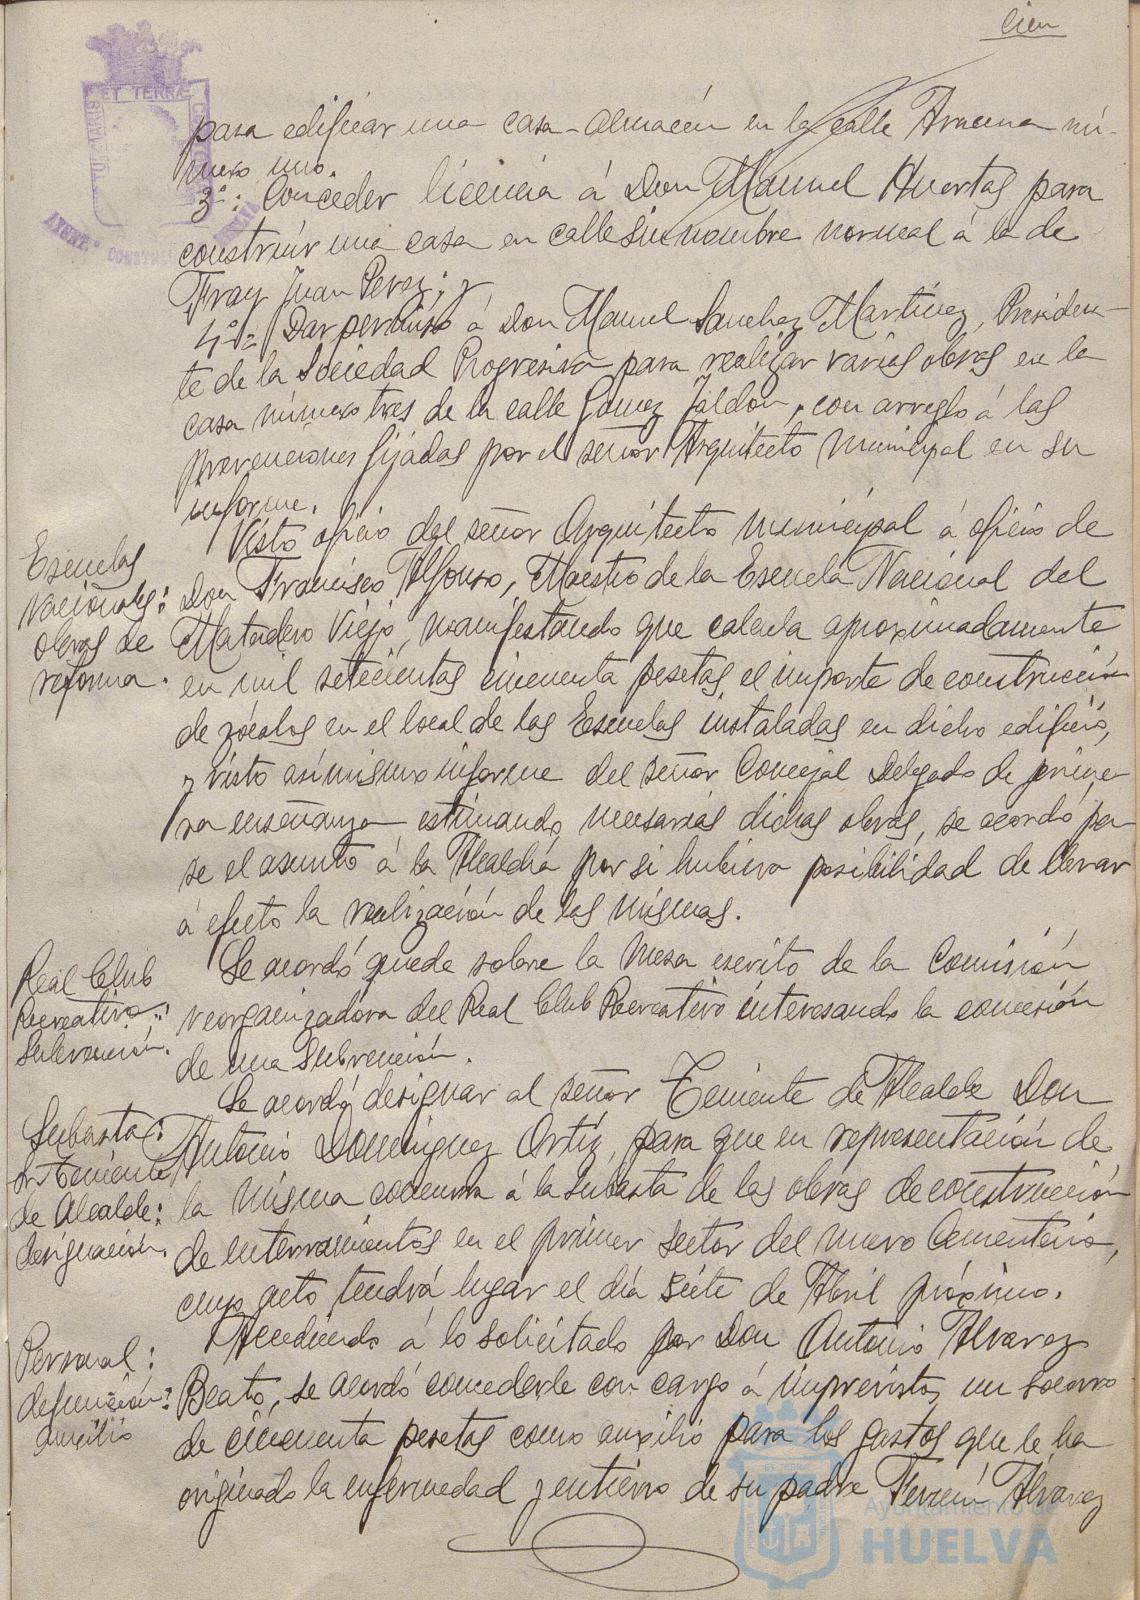 cien
para edificar una casa-almacén en la calle Aracena nú-
mero uno.
3º: Conceder licencia á Don Manuel Huertas para
construir una casa en calle sin nombre normal á la de
Fray Juan Perez; y
4º: Dar permiso á Don Manuel Sanchez Martínez, Presiden-
te de la Sociedad Progresiva para realizar varias obras en la
casa número tres de la calle Gomez Jaldon, con arreglo á las
prevenciones fijadas por el señor Arquitecto municipal en su
informe.
Escuelas
Nacionales:
obras de
reforma.
Visto oficio del señor Arquitecto municipal á oficio de
Don Francisco Alfonso, Maestro de la Escuela Nacional del
Matadero Viejo, manifestando que calcula aproximadamente
en mil setecientas cincuenta pesetas el importe de construcción
de zócalos en el local de las Escuelas instaladas en dicho edificio,
y visto asimismo informe del señor Concejal Delegado de prime-
ra enseñanza estimando necesarias dichas obras, se acordó pa-
se el asunto á la Alcaldía por si hubiera posibilidad de llevar
á efecto la realización de las mismas.
Real Club
Recreativo:
Subvención.
Se acordó quede sobre la mesa escrito de la Comisión
reorganizadora del Real Club Recreativo interesando la concesión
de una subvención.
Subasta:
Sr. Teniente
de Alcalde:
designación.
Se acordó designar al señor Teniente de Alcalde Don
Antonio Dominguez Ortíz, para que en representación de
la misma concurra á la subasta de las obras de construcción
de enterramientos en el primer sector del nuevo Cementerio,
cuyo acto tendrá lugar el día siete de Abril próximo.
Personal:
defunción:
auxilio
Accediendo á lo solicitado por Don Antonio Alvarez
Beato, se acordó concederle con cargo á imprevistos, un socorro
de cincuenta pesetas como auxilio para los gastos que le ha
originado la enfermedad y entierro de su padre Fermín Álvarez
ET TERRÆ
Ayuntamiento de
HUELVA